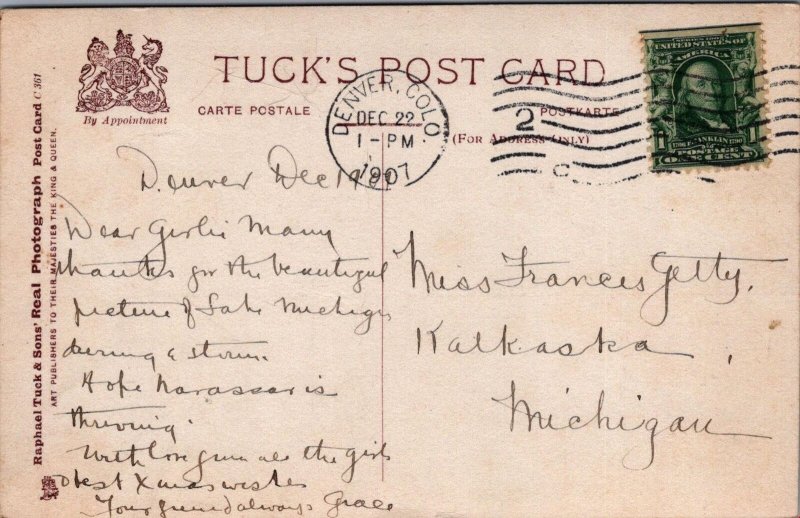 TUCK'S POST CARD
By Appointment
CARTE POSTALE
POSTKARTE
(FOR ADDRESS ONLY)
Raphael Tuck & Sons' Real Photograph Post Card C 361
ART PUBLISHERS TO THEIR MAJESTIES THE KING & QUEEN.
DENVER, COLO.
DEC 22
1-PM
1907
2
C
SERIES 1902
UNITED STATES OF
AMERICA
FRANKLIN
POSTAGE
1 ONE CENT 1
Denver Dec
Dear Girlie Many
thanks for the beautiful
picture of Lake Michigan
during a storm.
Hope is
thriving.
With love from all the girls
& best Xmas wishes
Your friend always Grace
Miss Frances Getty,
Kalkaska,
Michigan